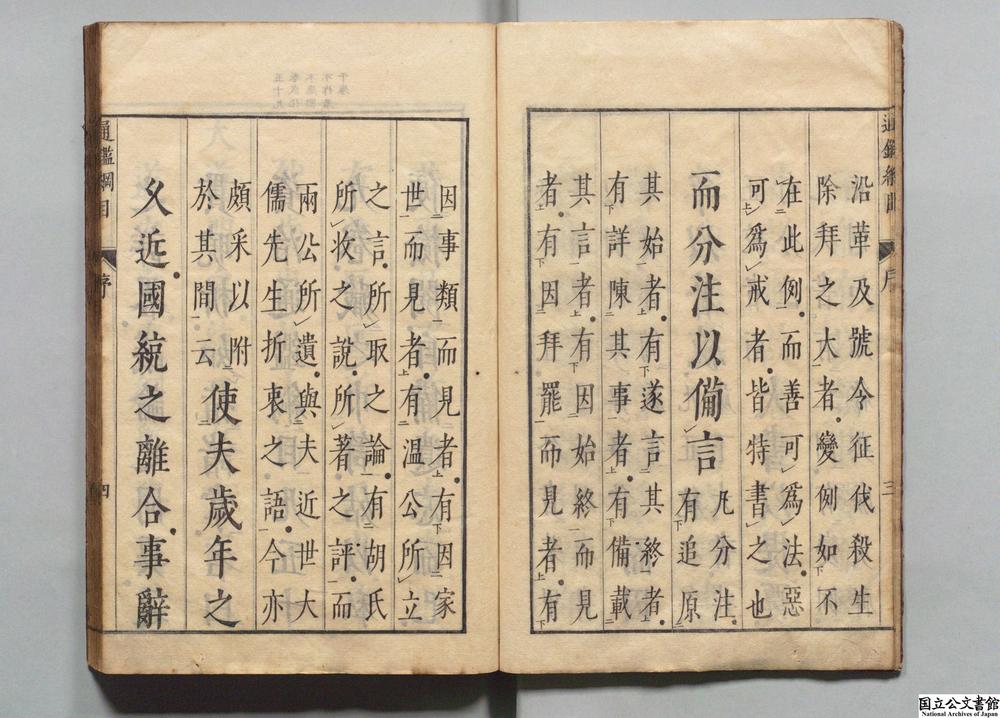 通鑑綱目 序 三
沿革及號令征伐殺生
除拜之大者變例如不
在此例而善可爲法惡
可爲戒者皆特書之也
而分注以備言
凡分注
有追原
其始者有遂言其終者
有詳陳其事者有備載
其言者有因始終而見
者有因拜罷而見者有
因事類而見者有因家
世而見者有溫公所立
之言所取之論有胡氏
所收之說所著之評而
兩公所遺與夫近世大
儒先生折衷之語今亦
頗采以附
於其間云
使夫歲年之
久近國統之離合事辭
通鑑綱目 序 四
国立公文書館
National Archives of Japan